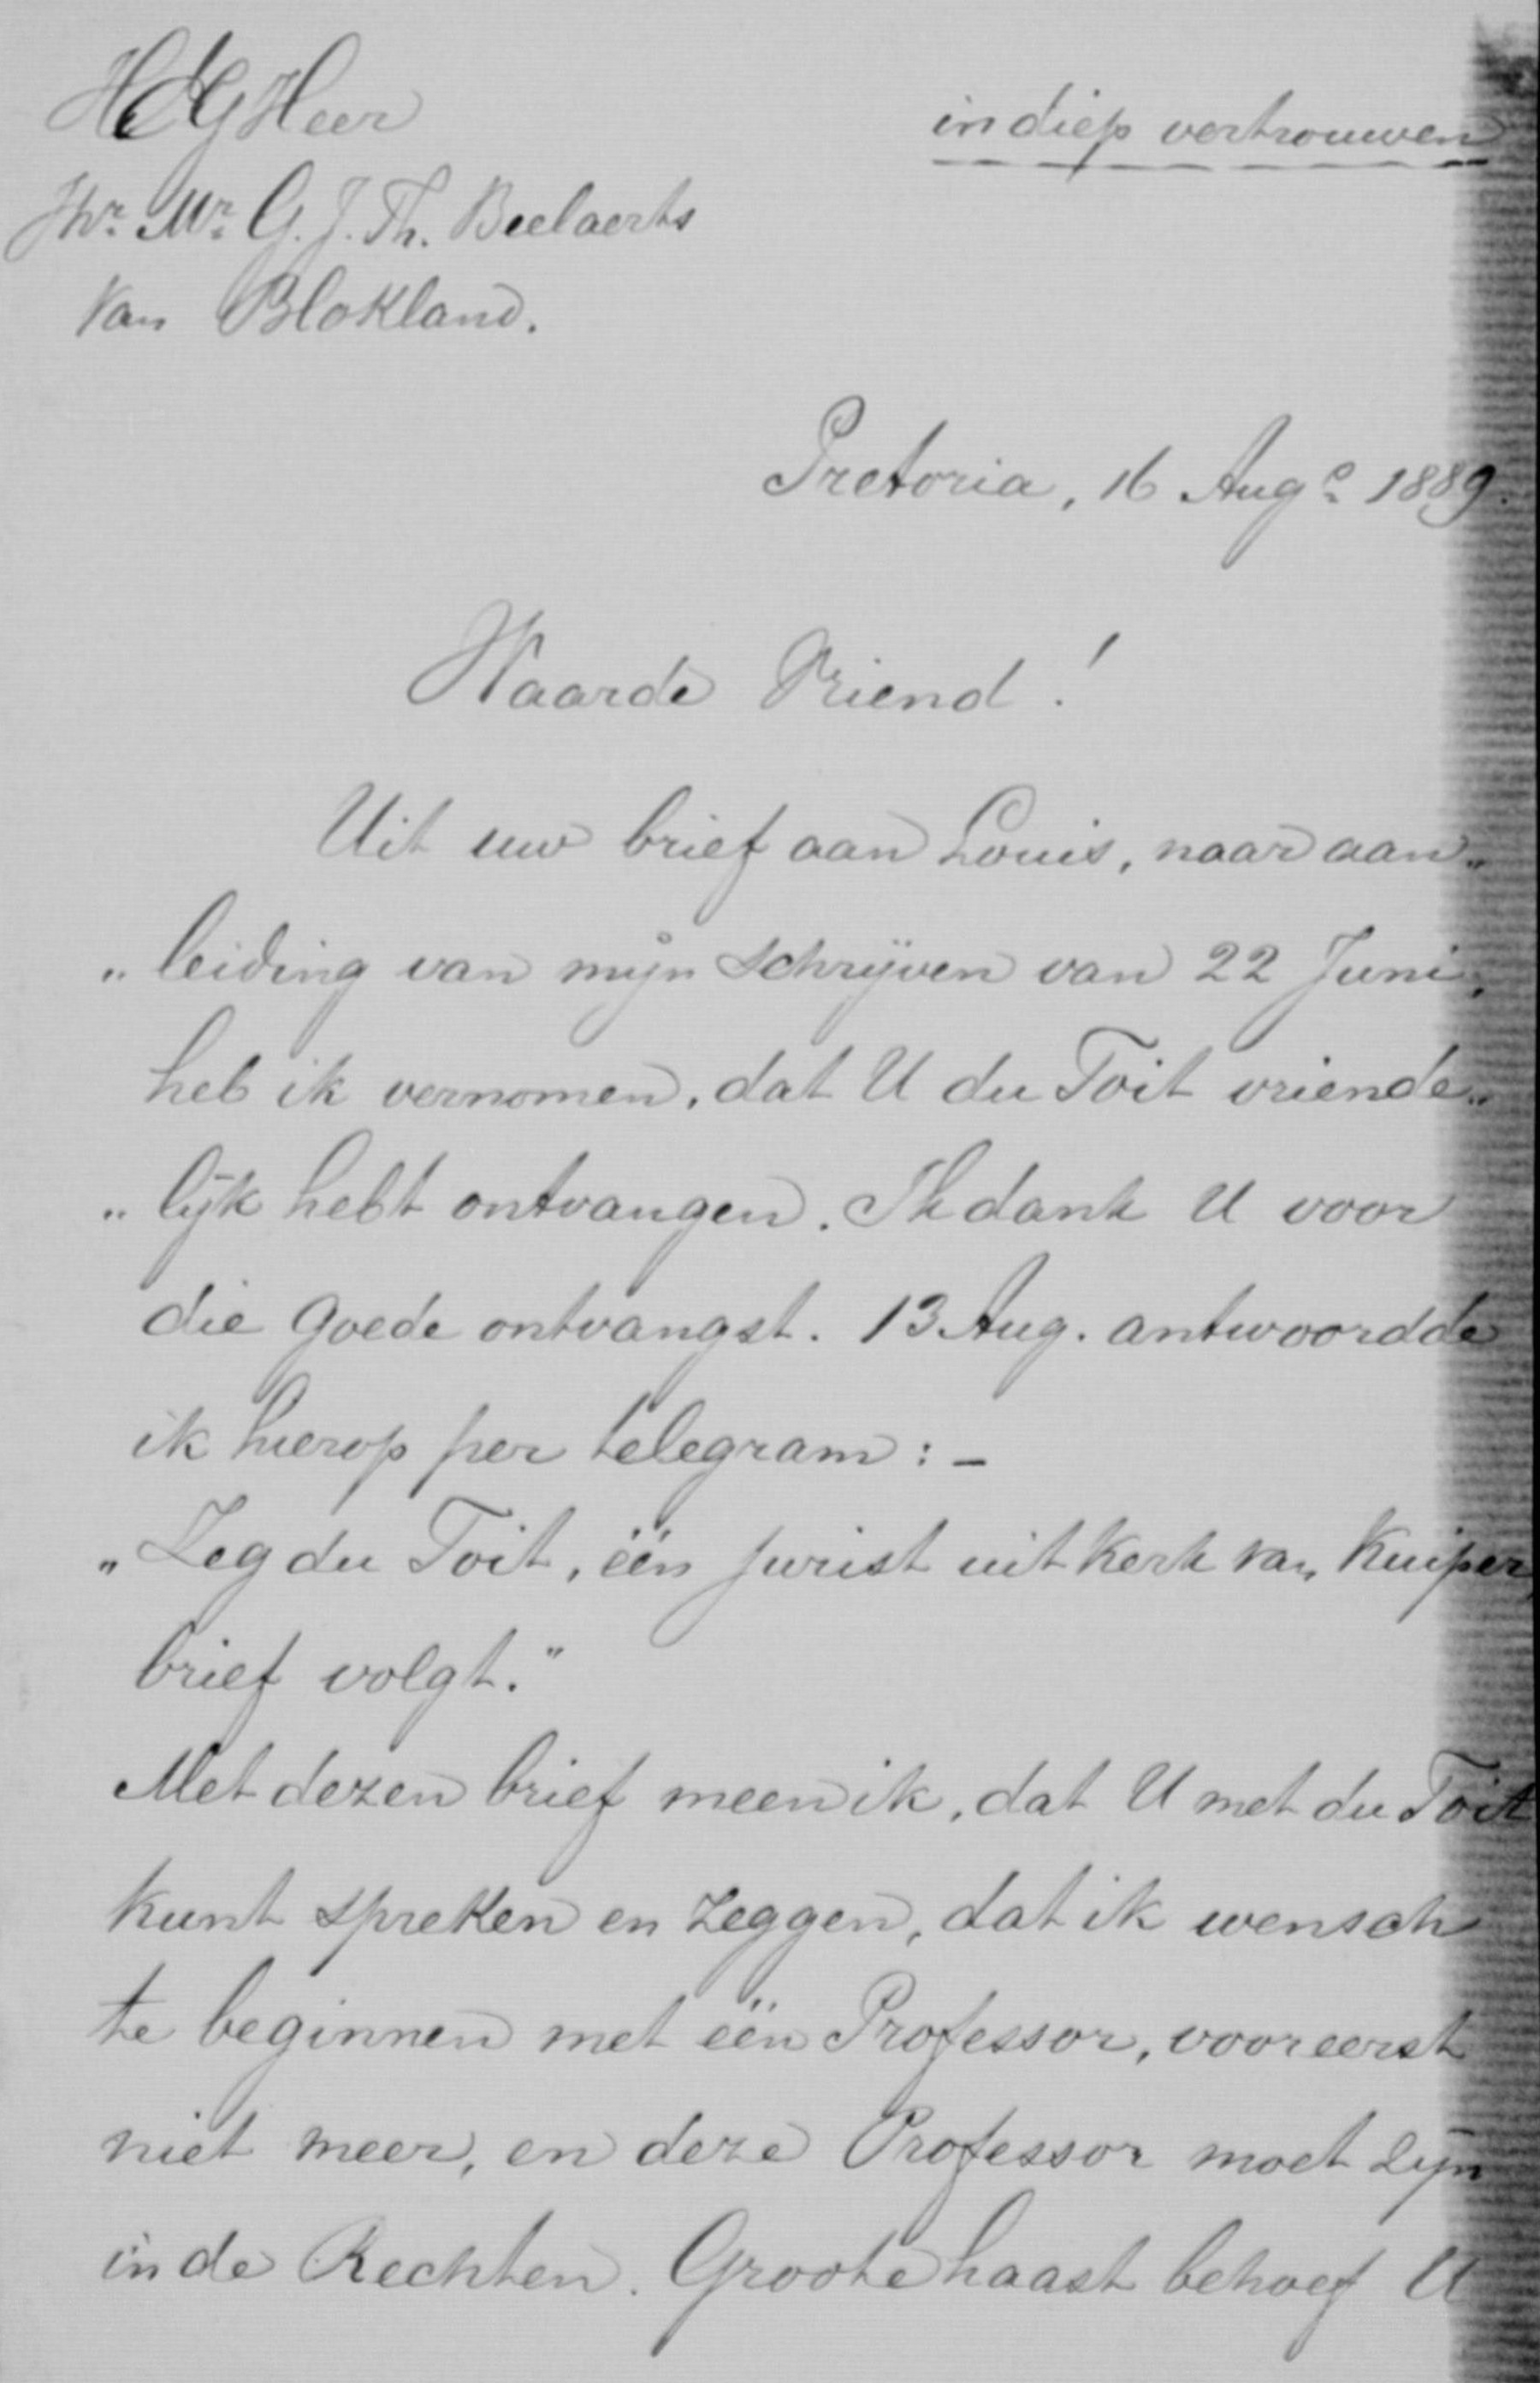 HEdG Heer
in diep vertrouwen
Jhr. Mr. G. J. Th. Beelaerts
van Blokland.
Pretoria, 16 Augo. 1889.
Waarde Vriend!
Uit uw brief aan Louis, naar aan„
„leiding van mijn schrijven van 22 Juni,
heb ik vernomen, dat U du Toit vriende„
„lijk hebt ontvangen. Ik dank U voor
die goede ontvangst. 13 Aug. antwoordde
ik hierop per telegram: –
„Zeg du Toit, één jurist uit kerk van Kuiper,
brief volgt."
Met dezen brief meen ik, dat U met du Toit
kunt spreken en zeggen, dat ik wensch
te beginnen met één Professor, vooreerst
niet meer, en deze Professor moet zijn
in de Rechten. Groote haast behoef U